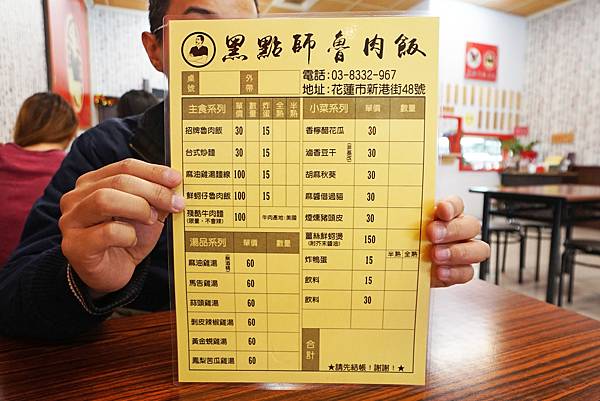 黑點師魯肉飯
桌號 外帶
電話:03-8332-967
地址:花蓮市新港街48號
主食系列 單價 數量 炸蛋 全熟 半熟
招牌魯肉飯 30 15
台式炒麵 30 15
麻油雞湯麵線 100 15
鮮蚵仔魯肉飯 100 15
殘酷牛肉麵 100 牛肉產地:美國
(限量,不會辣)
湯品系列 單價 數量
麻油雞湯 60
馬告雞湯 60
蒜頭雞湯 60
剝皮辣椒雞湯 60
黃金蜆雞湯 60
鳳梨苦瓜雞湯 60
小菜系列 單價 數量
香檸醋花瓜 30
滷香豆干 30
胡麻秋葵 30
麻醬佰過貓 30
煙燻豬頭皮 30
薑絲鮮蚵燙 150
(附芥末醬油)
炸鴨蛋 15 半熟 全熟
飲料 15
飲料 30
合計
★請先結帳!謝謝!★